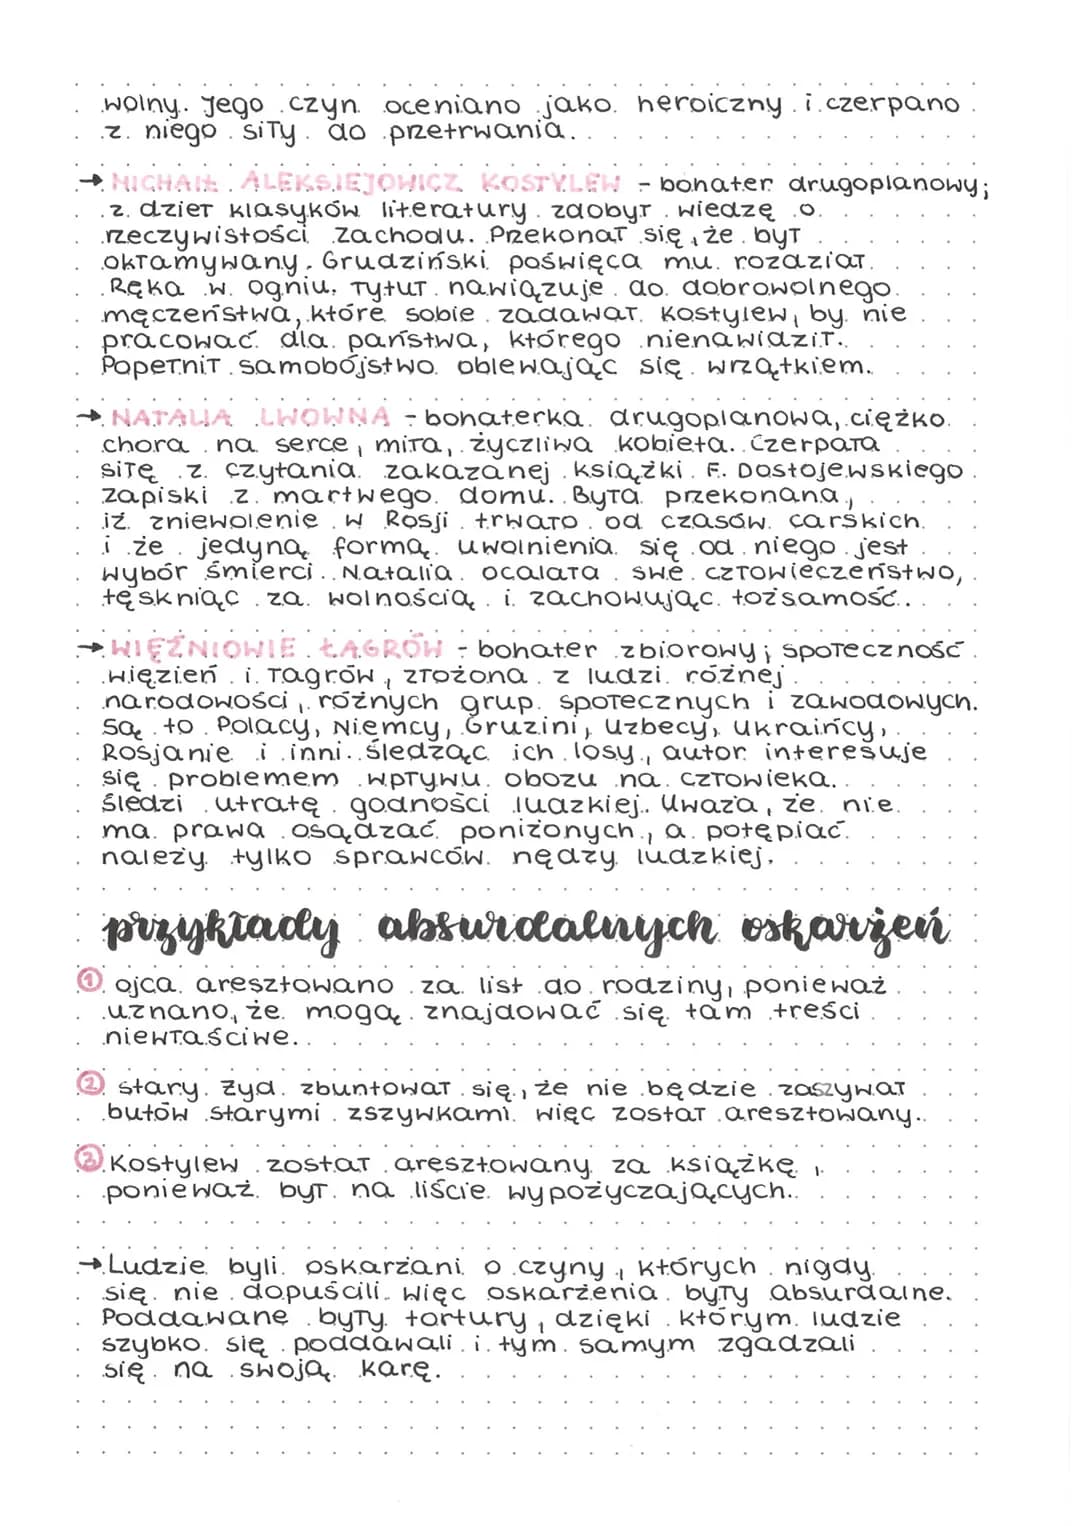 wolny. Jego czyn oceniano jako heroiczny i czerpano
z niego siły do przetrwania.
→ MICHAIŁ ALEKSIEJOWICZ KOSTYLEW - bohater drugoplanowy;
z dzieł klasyków literatury zdobył wiedzę o
rzeczywistości Zachodu. Przekonał się, że był
okłamywany. Grudziński poświęca mu rozdział
Ręka w ogniu. Tytuł nawiązuje do dobrowolnego
męczeństwa, które sobie zadawał Kostylew, by nie
pracować dla państwa, którego nienawidził.
Popełnił samobójstwo oblewając się wrzątkiem.
→ NATALIA LWOWNA - bohaterka drugoplanowa, ciężko
chora na serce, miła, życzliwa kobieta. Czerpała
siłę z czytania zakazanej książki F. Dostojewskiego
Zapiski z martwego domu. Była przekonana,
iż zniewolenie w Rosji trwało od czasów carskich
i że jedyną formą uwolnienia się od niego jest
wybór śmierci. Natalia ocalała swe człowieczeństwo,
tęskniąc za wolnością i zachowując tożsamość.
→ WIĘŹNIOWIE ŁAGRÓW - bohater zbiorowy; społeczność
więzień i łagrów, złożona z ludzi różnej
narodowości, różnych grup społecznych i zawodowych.
Są to Polacy, Niemcy, Gruzini, Uzbecy, Ukraińcy,
Rosjanie i inni. Śledząc ich losy, autor interesuje
się problemem wpływu obozu na człowieka.
Śledzi utratę godności ludzkiej. Uważa, że nie
ma prawa osądzać poniżonych, a potępiać
należy tylko sprawców nędzy ludzkiej.
przykłady absurdalnych oskarżeń
① ojca aresztowano za list do rodziny, ponieważ
uznano, że mogą znajdować się tam treści
niewłaściwe.
② stary Żyd zbuntował się, że nie będzie zaszywał
butów starymi zszywkami więc został aresztowany.
③ Kostylew został aresztowany za książkę,
ponieważ był na liście wypożyczających.
→ Ludzie byli oskarżani o czyny, których nigdy
się nie dopuścili więc oskarżenia były absurdalne.
Poddawane były tortury, dzięki którym ludzie
szybko się poddawali i tym samym zgadzali
się na swoją karę.